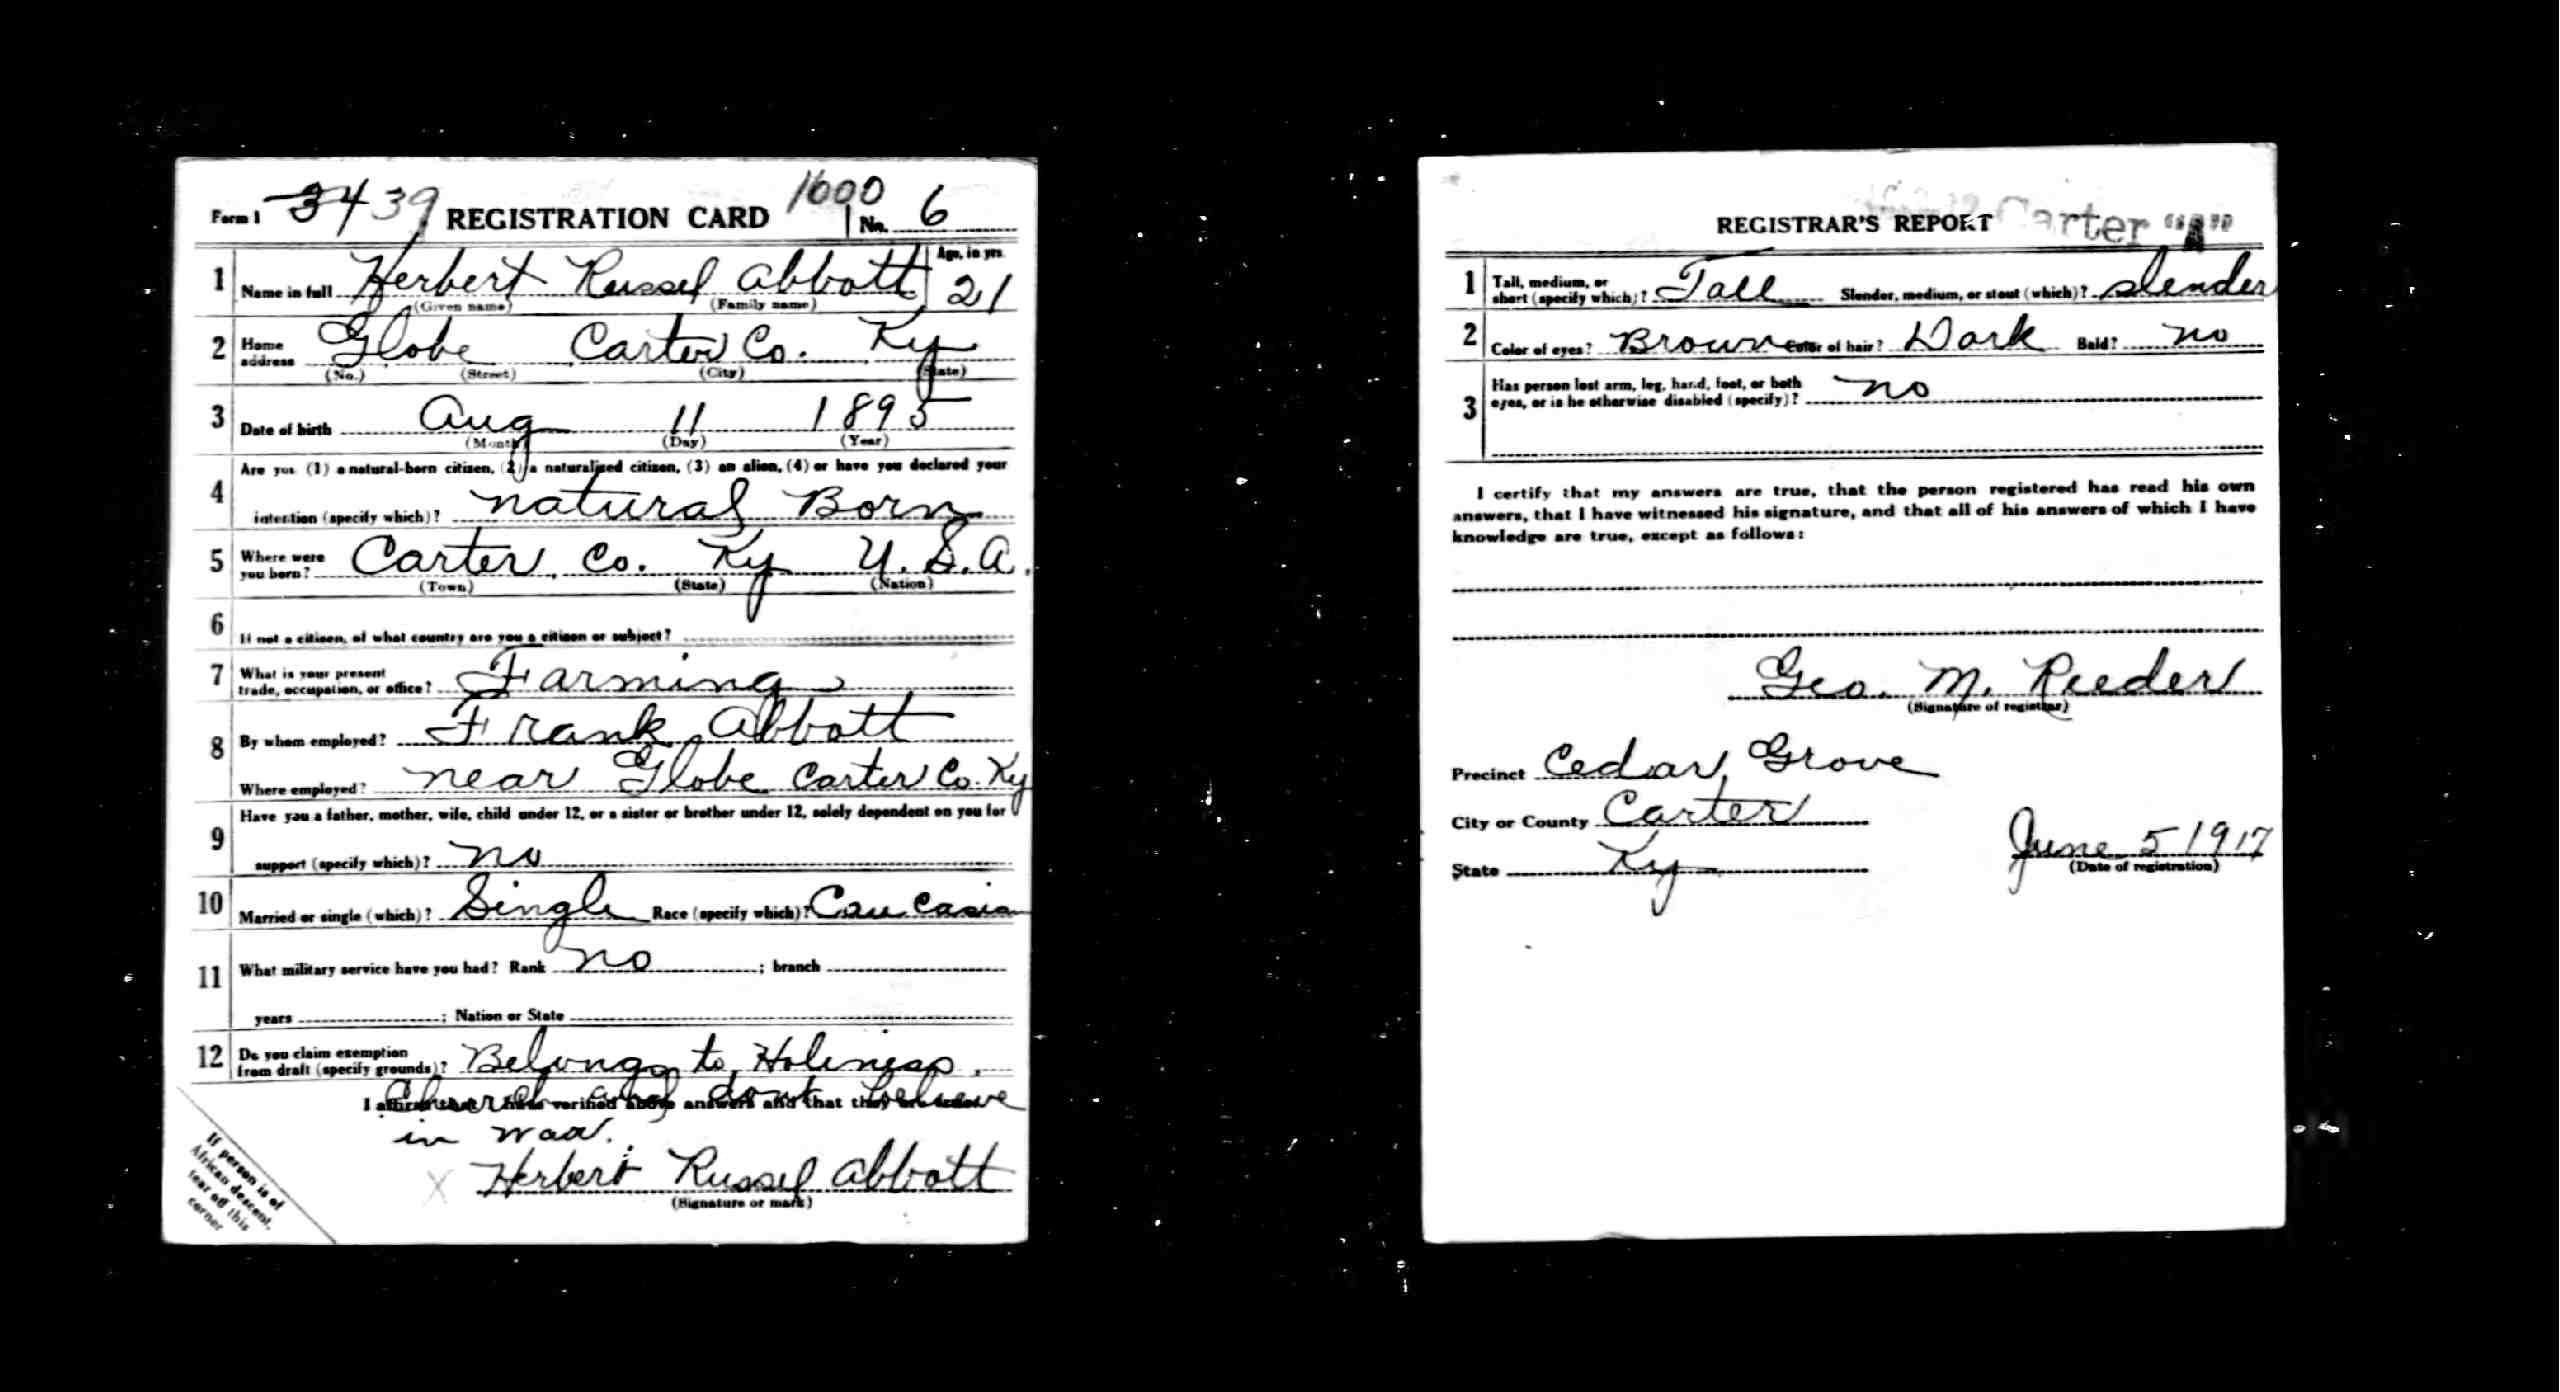 Form 1 3439 REGISTRATION CARD 1600 No. 6
1 Name in full Herbert Russel Abbott Age, in yrs. 21
(Given name) (Family name)
2 Home address Globe Carter Co. Ky
(No.) (Street) (City) (State)
3 Date of birth Aug 11 1895
(Month) (Day) (Year)
4 Are you (1) a natural-born citizen, (2) a naturalized citizen, (3) an alien, (4) or have you declared your
intention (specify which)? natural Born
5 Where were you born? Carter Co. Ky U.S.A.
(Town) (State) (Nation)
6 If not a citizen, of what country are you a citizen or subject?
7 What is your present trade, occupation, or office? Farming
8 By whom employed? Frank Abbott
Where employed? near Globe Carter Co. Ky
9 Have you a father, mother, wife, child under 12, or a sister or brother under 12, solely dependent on you for
support (specify which)? no
10 Married or single (which)? Single Race (specify which)? Caucasian
11 What military service have you had? Rank no ; branch
years ; Nation or State
12 Do you claim exemption from draft (specify grounds)? Belongs to Holiness
Church and dont believe
I affirm that I have verified above answers and that they are true.
in war.
X Herbert Russel Abbott
(Signature or mark)
If person is of
African descent,
tear off this
corner
REGISTRAR'S REPORT Carter "A"
1 Tall, medium, or short (specify which)? Tall Slender, medium, or stout (which)? slender
2 Color of eyes? Brown Color of hair? Dark Bald? no
3 Has person lost arm, leg, hand, foot, or both
eyes, or is he otherwise disabled (specify)? no
I certify that my answers are true, that the person registered has read his own
answers, that I have witnessed his signature, and that all of his answers of which I have
knowledge are true, except as follows:
Geo. M. Reeder
(Signature of registrar)
Precinct Cedar Grove
City or County Carter
State Ky
June 5 1917
(Date of registration)